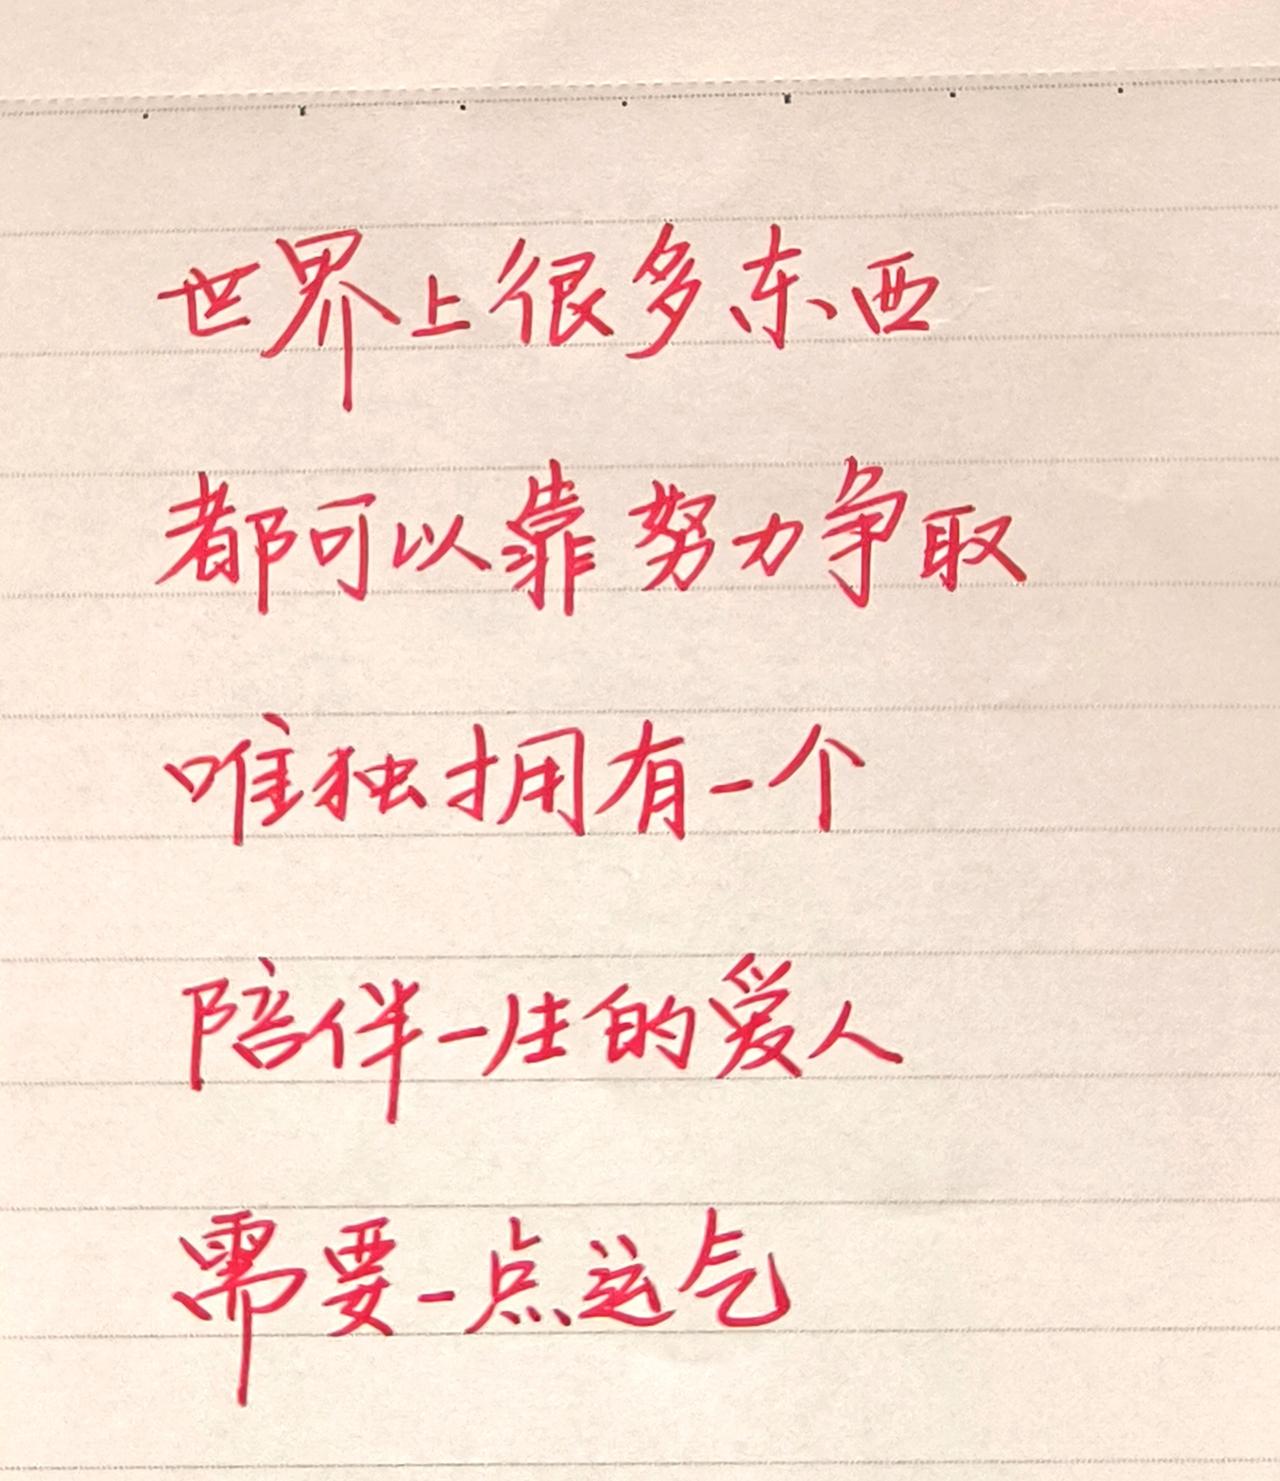 世界上很多东西
都可以靠努力争取
唯独拥有一个
陪伴一生的爱人
需要一点运气